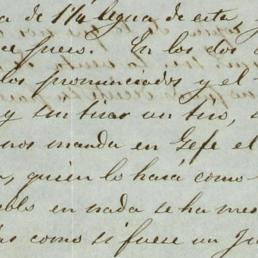 a de 1¼ legua de esta,
ce pues. En los dos
los pronunciados y el
y sin tirar un tiro, s
nos manda en Gefe el
, quien lo hará como
blo en nada se ha mes
as como si fuese un Ju